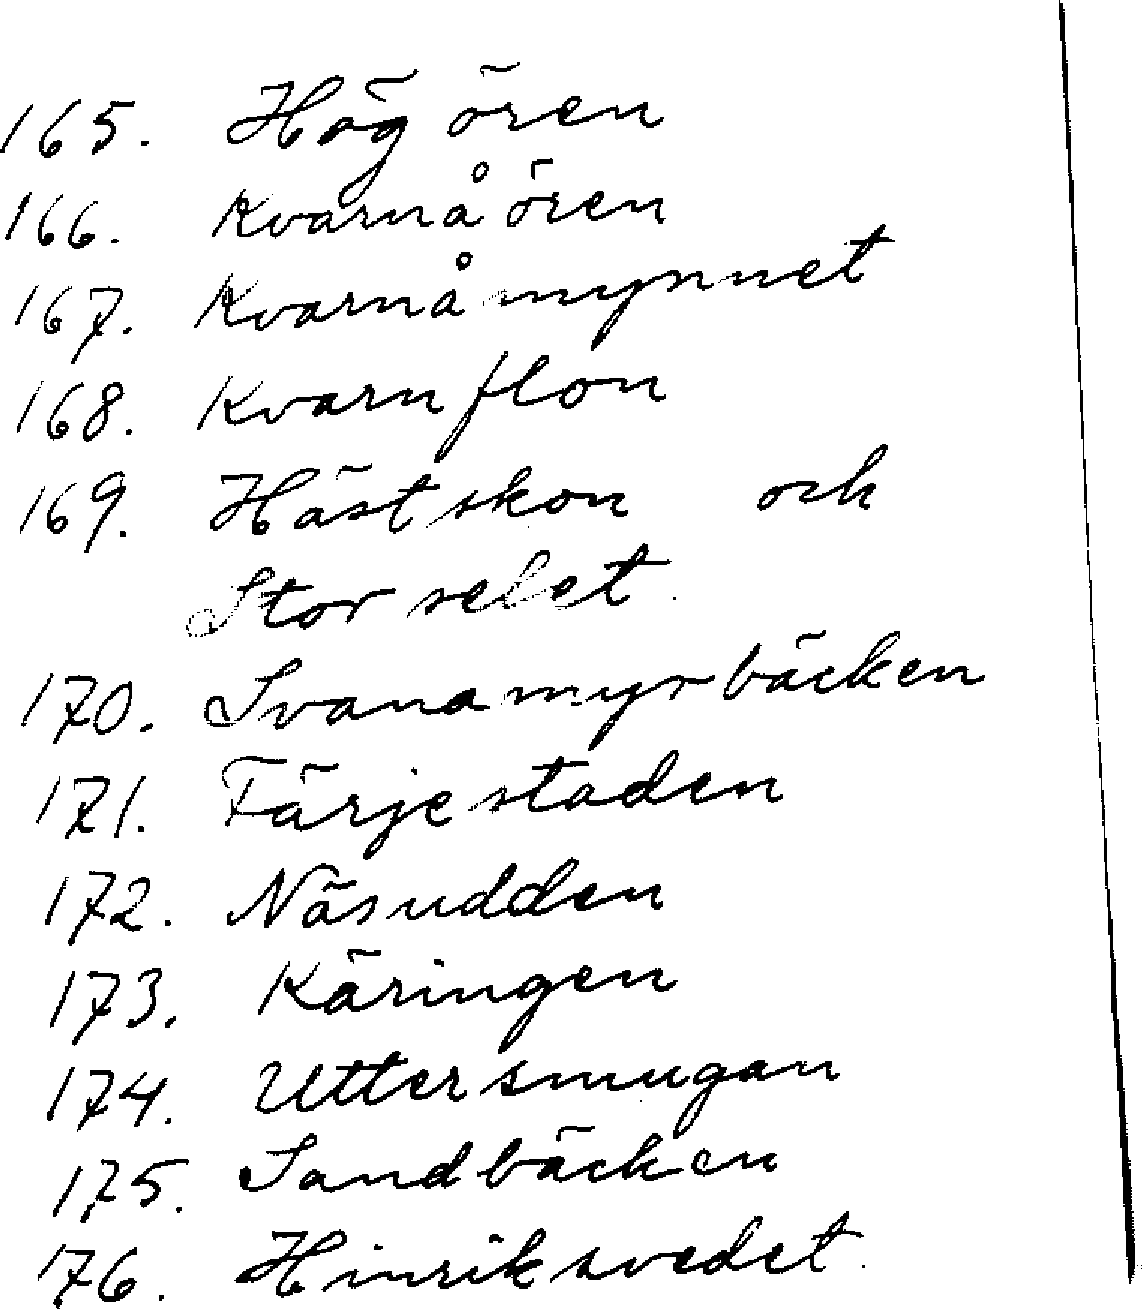 165. Hög ören
166. Kvarnåören
167. Kvarnåmynnet
168. Kvarnflon
169. Hästskon och
Storselet.
170. Svanamyrbäcken
171. Färjestaden
172. Näsudden
173. Käringen
174. Uttersmugan
175. Sandbäcken
176. Hinriksvedet.